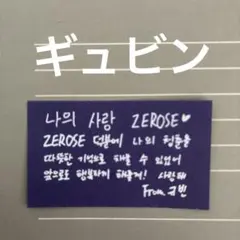 ギュビン
나의 사랑 ZEROSE♥
ZEROSE 덕분에 나의 청춘을
따뜻한 기억으로 채울 수 있었어
앞으로도 행복하게 해줄게! 사랑해
From 규빈